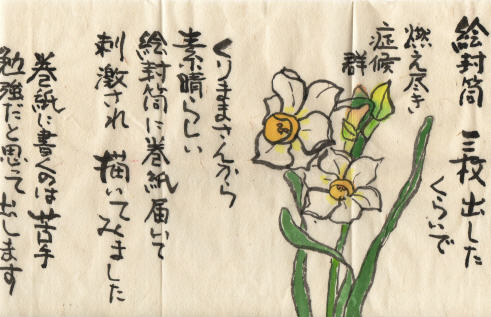 絵封筒 三枚出した
くらいで
燃え尽き
症候
群
くりままさんから
素晴らしい
絵封筒に巻紙届いて
刺激され 描いてみました
巻紙に書くのは苦手
勉強だと思って出します